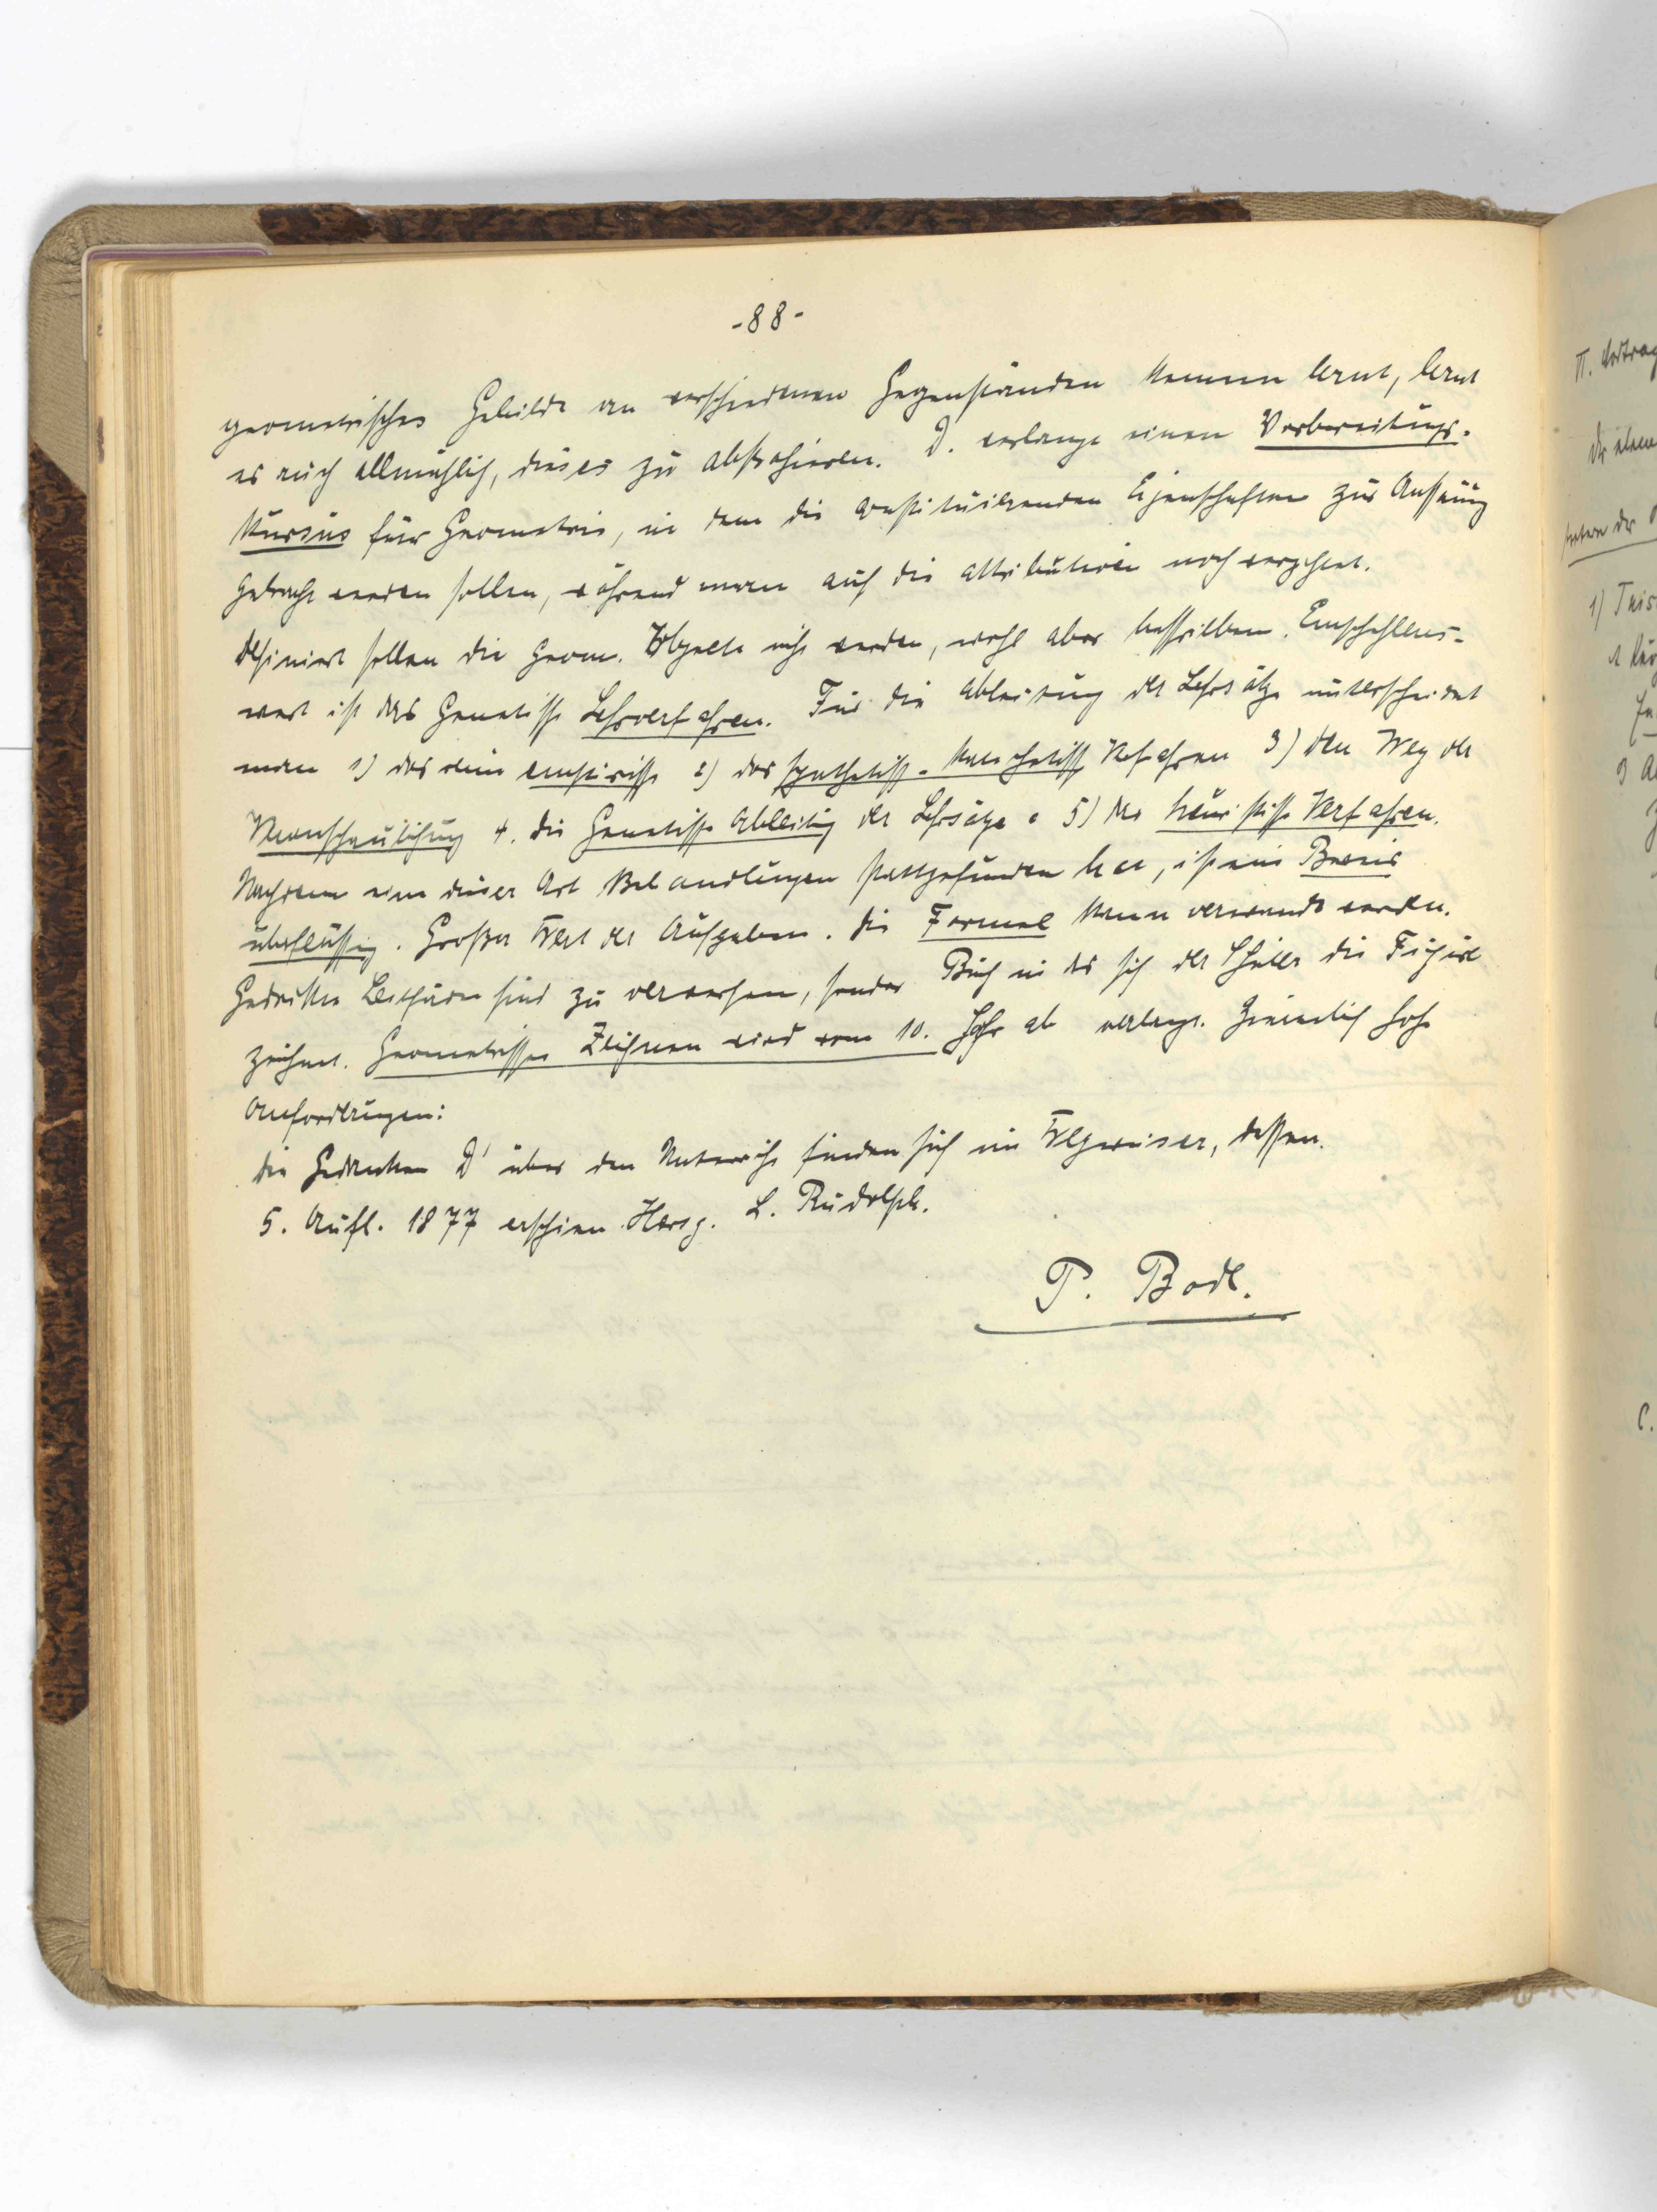 -88-
geometrisches Gebilde an verschiedenen Gegenständen kennen lernt, lernt
es auch allmählich, dieses zu abstrahieren. D. verlangt einen Vorbereitungs-
kursus für Geometrie, in dem die constituirenden Eigenschaften zur Anschauung
gebracht werden sollen, während man auf die attributiven noch verzichtet.
Definiert sollen die geom. Objecte nicht werden, wohl aber beschrieben. Empfehlens-
wert ist das genetische Lehrverfahren. Für die Ableitung der Lehrsätze unterscheidet
man 1) das rein empirische 2) das synthetisch-katechetisch Verfahren 3) den Weg der
Veranschaulichung 4. die genetische Ableitung der Lehrsätze 5) das heuristische Verfahren.
Nachdem eine dieser Art Behandlungen stattgefunden hat, ist ein Beweis
überflüssig. Großer Wert der Aufgaben. Die Formel kann verwandt werden.
Gedruckte Leitfäden sind zu verwerfen, sonder Buch in das sich der Schüler die Figur
zeichnet. Geometrisches Zeichnen wird vom 10. Jahr ab verlangt. Ziemlich hohe
Anforderungen:
Die Gedanken D' über den Unterricht finden sich im Wegweiser, dessen
5. Aufl. 1877 erschien. Hersg. L. Rudolph.
P. Bode.
II. Vortrag
C.